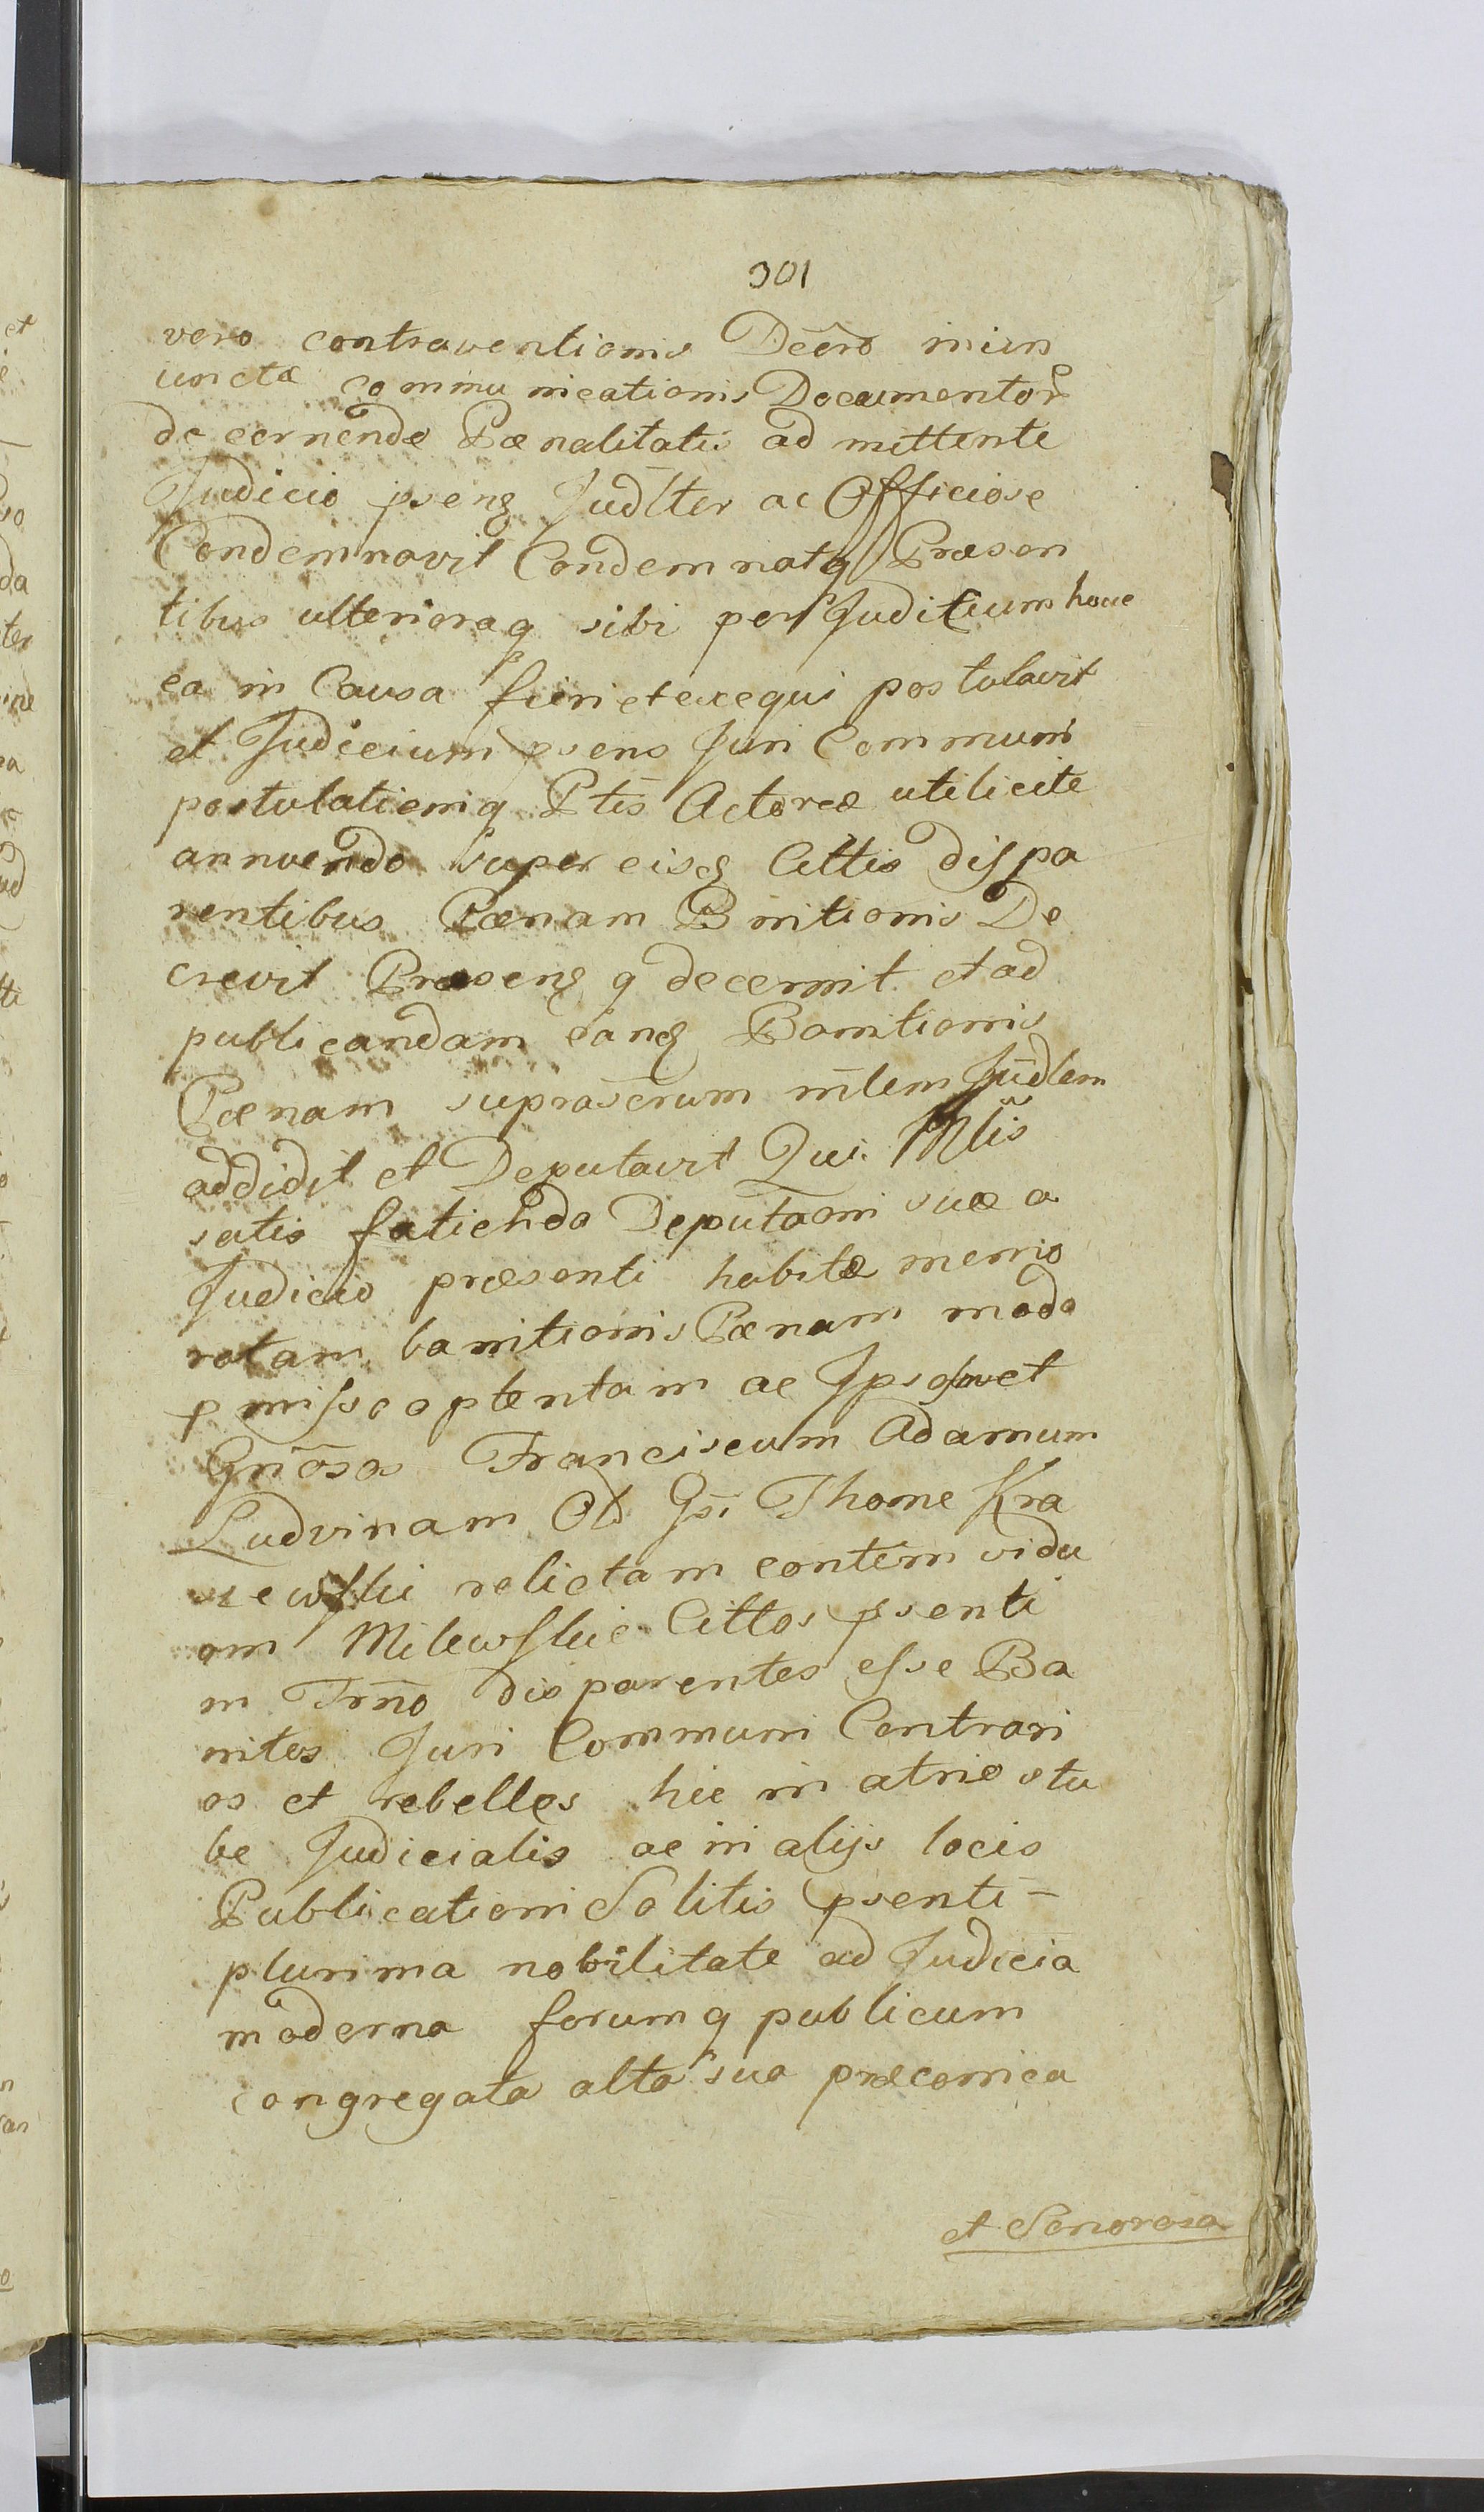 301
vero contraventionis Decro iniun
unctæ communicationis Documentor
decernende Pænalitatis admittente
Judicio psenq Judlter ac Officiose
Condemnavit Condemnatq Præsen
tibus ulterioraq sibi per Juditium hocce
ea in Causa fieri et exequi postulavit
et Judicium psens Juri Communi
postulationiq Ptis Actoreæ utilicite
annuendo super eisq Cittis dispa
rentibus Pænam Bnitionis De
crevit Præsenq q decernit et ad
publicandam eanq Banitionis
Pænam suprascrum mlem Judlem
addidit et Deputavit Qui Mlis
satis fatiendo Deputaoni suæ a
Judicio præsenti habitæ memo
ratam banitionis Pænam modo
pmisso optentam ac Ipsosmet
Gnosos Franciscum Adamum
Ludvinam Ol Gsi Thome Kra
sewski relictam contem vidu
am Milewskie Cittos psenti
in Trno disparentes esse Ba
nitos Juri Communi Contrari
os et rebelles hic in atrio stu
be Judicialis ac in alijs locis
Publicationi Solitis psenti
plurima nobilitate ad Judicia
moderna forumq publicum
congregata alta sua præconica
et Sonorosa